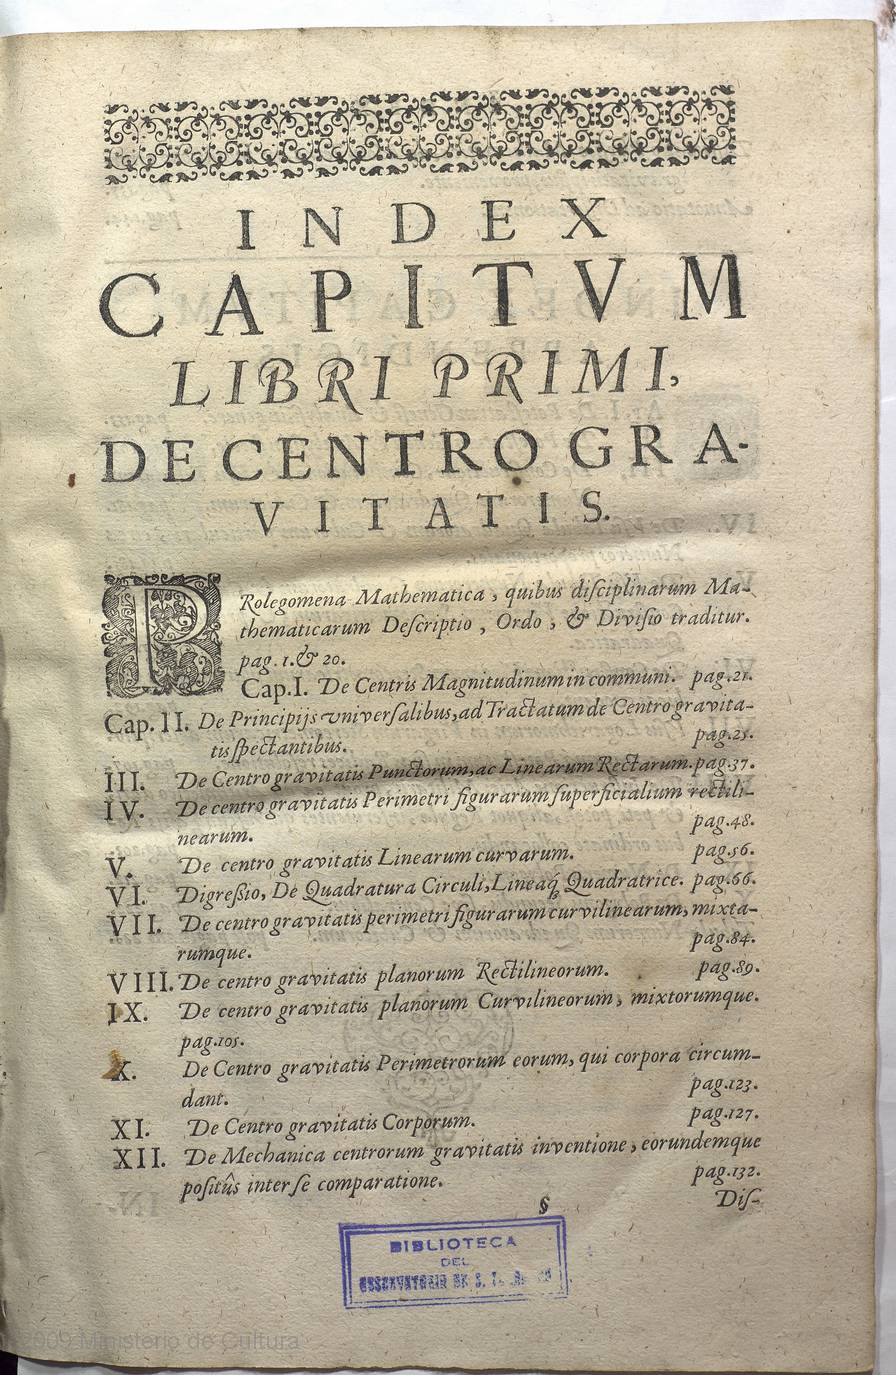 INDEX
CAPITVM
LIBRI PRIMI,
DE CENTRO GRA-
VITATIS.
PRolegomena Mathematica, quibus diſciplinarum Ma-
thematicarum Deſcriptio, Ordo, & Diviſio traditur.
pag. 1. & 20.
Cap. I. De Centris Magnitudinum in communi. pag. 21.
Cap. II. De Principijs vniverſalibus, ad Tractatum de Centro gravita-
tis ſpectantibus. pag. 25.
III. De Centro gravitatis Punctorum, ac Linearum Rectarum. pag. 37.
IV. De centro gravitatis Perimetri figurarum ſuperficialium rectili-
nearum. pag. 48.
V. De centro gravitatis Linearum curvarum. pag. 56.
VI. Digreßio, De Quadratura Circuli, Lineaq́; Quadratrice. pag. 66.
VII. De centro gravitatis perimetri figurarum curvilinearum, mixta-
rumque. pag. 84.
VIII. De centro gravitatis planorum Rectilineorum. pag. 89.
IX. De centro gravitatis planorum Curvilineorum, mixtorumque.
pag. 105.
X. De Centro gravitatis Perimetrorum eorum, qui corpora circum-
dant. pag. 123.
XI. De Centro gravitatis Corporum. pag. 127.
XII. De Mechanica centrorum gravitatis inventione, eorundemque
poſitûs inter ſe comparatione. pag. 132.
§ Diſ-
BIBLIOTECA
DEL
OBSERVATORIO DE
2009 Ministerio de Cultura